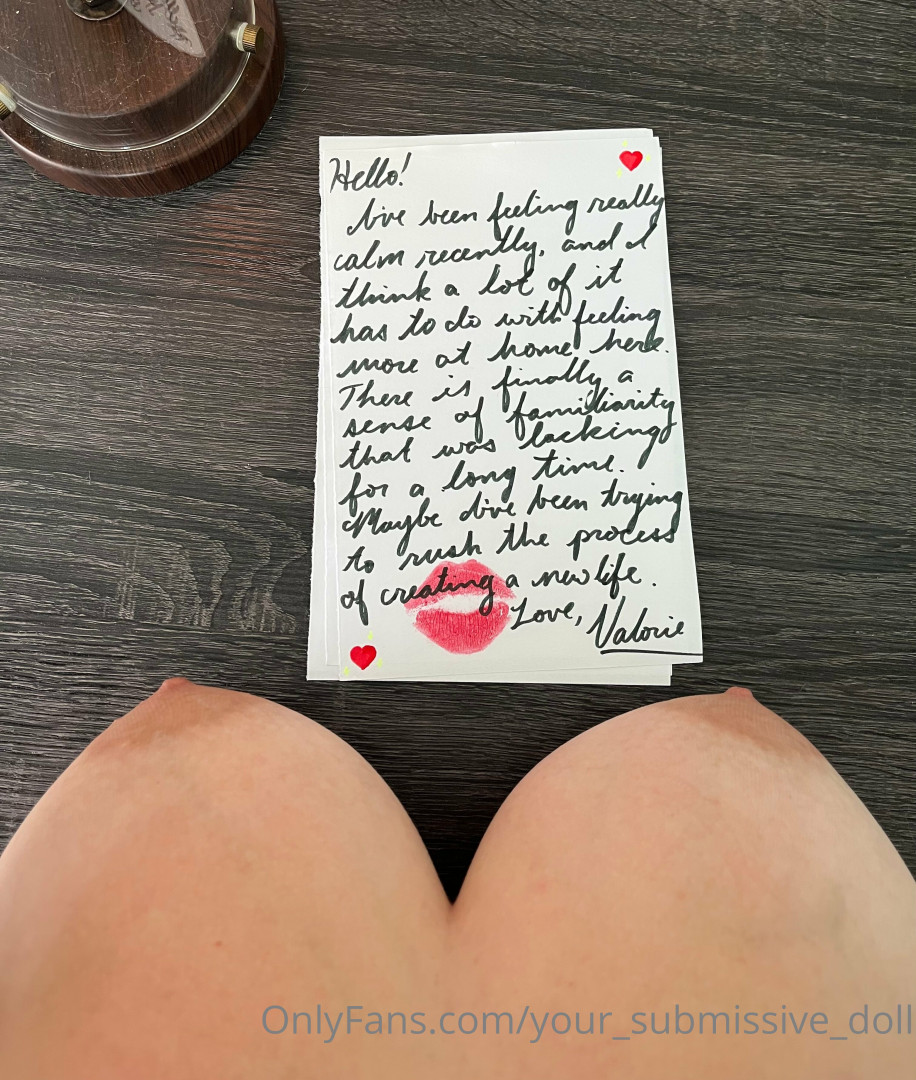 Hello!
I've been feeling really
calm recently, and I
think a lot of it
has to do with feeling
more at home here.
There is finally a
sense of familiarity
that was lacking
for a long time.
Maybe I've been trying
to rush the process
of creating a new life.
Love, Valorie
OnlyFans.com/your_submissive_doll